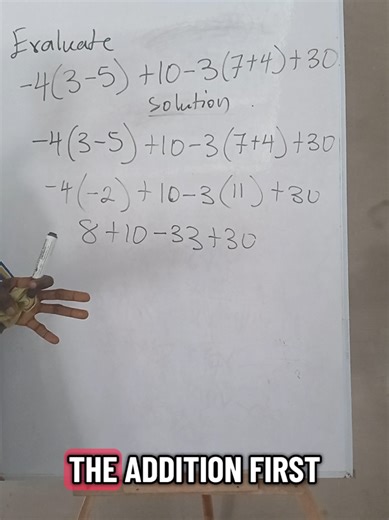 Evaluate
-4(3-5) +10-3(7+4)+30
Solution.
-4(3-5) +10-3(7+4)+30
-4(-2) +10-3(11) +30
8+10-33+30
THE ADDITION FIRST